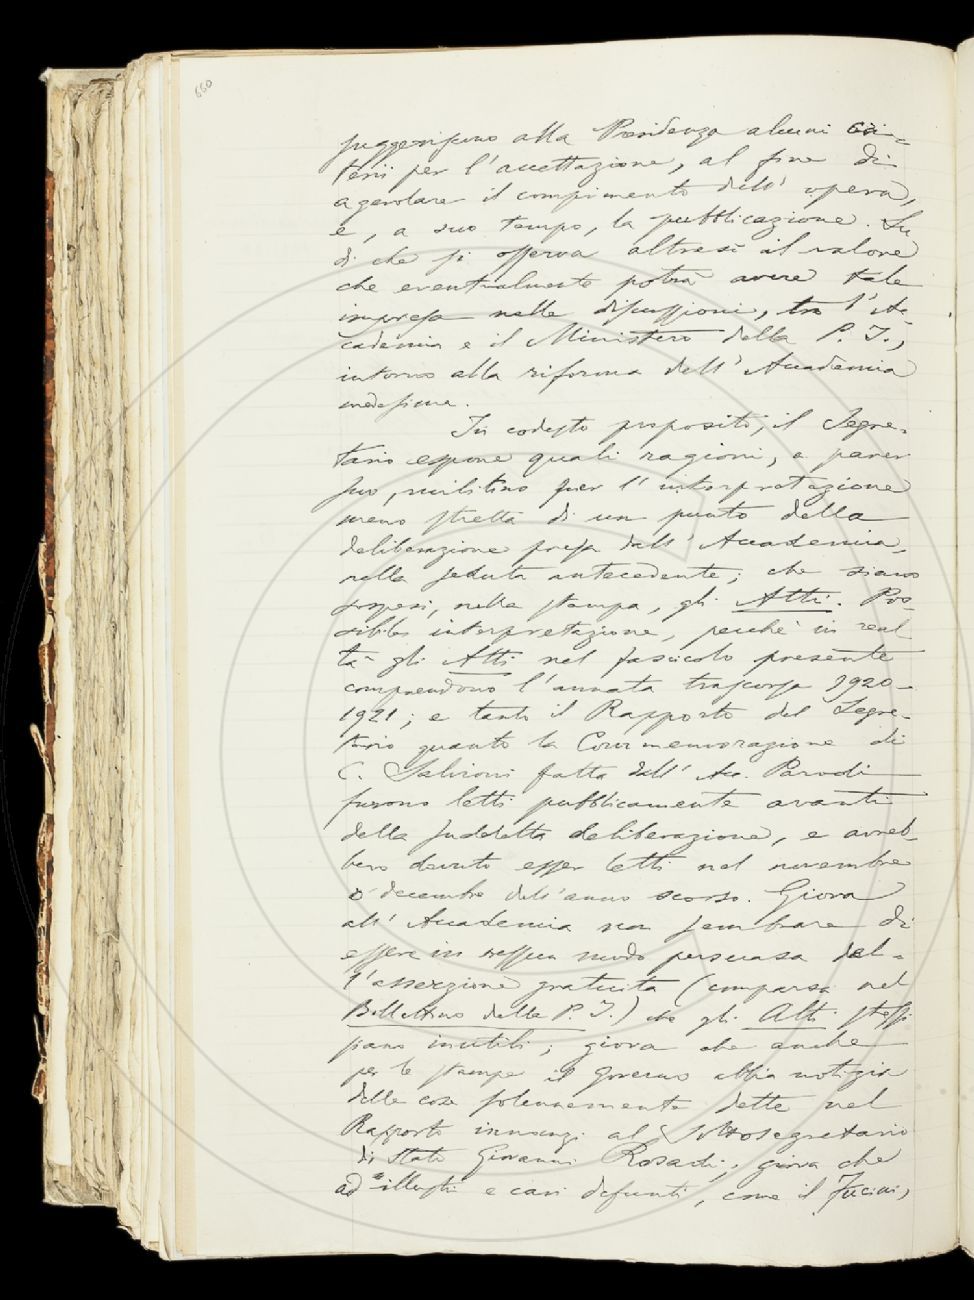 660
suggerissero alla Presidenza alcuni cri-
terii per l'accettazione, al fine di
agevolare il compimento dell' opera,
e, a suo tempo, la pubblicazione. Su
di che si osserva altresì il valore
che eventualmente potrà avere tale
impresa nelle discussioni, tra l'Ac-
cademia e il Ministero della P. I.,
intorno alla riforma dell' Accademia
medesima.
In codesto proposito, il Segre-
tario espone quali ragioni, a parer
suo, militino per l'interpretazione
meno stretta di un punto della
deliberazione presa dall' Accademia,
nella seduta antecedente; che siano
sospesi, nella stampa, gli Atti. Pos-
sibile interpretazione, perché in real-
tà gli Atti nel fascicolo presente
comprendono l'annata trascorsa 1920-
1921; e tanto il Rapporto del Segre-
tario quanto la Commemorazione di
C. Salvioni fatta dall' Ac. Parodi
furono letti pubblicamente avanti
della suddetta deliberazione, e avreb-
bero dovuto esser letti nel novembre
o decembre dell'anno scorso. Giova
all' Accademia non sembrare di
essere in nessun modo persuasa del-
l'asserzione gratuita (comparsa nel
Bollettino della P. I.) che gli Atti stessi
siano inutili; giova che anche
per le stampe il governo abbia notizia
delle cose solennemente dette nel
Rapporto innanzi al Sottosegretario
di Stato Giovanni Rosadi; giova che
ad illustri e cari defunti, come il Fucini,